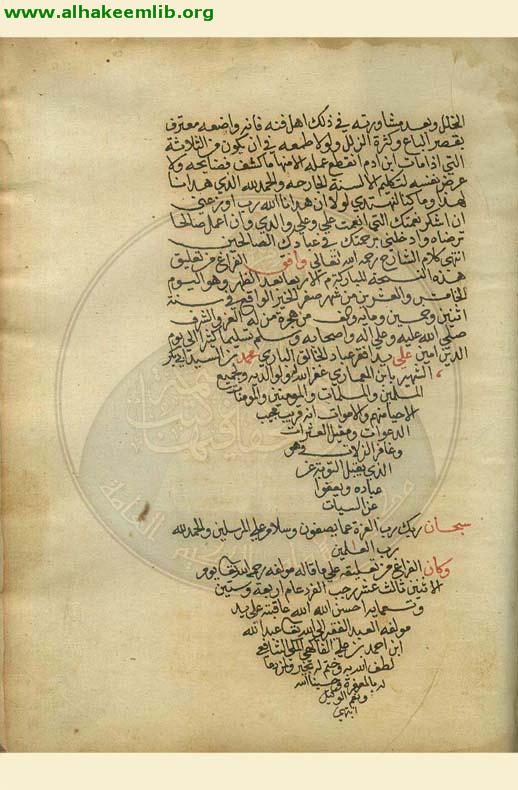 www.alhakeemlib.org
الخلل وبعد مشاورته في ذلك اهل فنه فانه واضعه معترف
بقصر الباع وكثرة الزلل ولولا طمعه في ان يكون من الثلاثة
التي اذا مات ابن ادم انقطع عمله الا منها ما كشف فضايحه ولا
عرض نفسه لتكليم الالسنة الخارجه والحمد لله الذي هدانا
لهذا وما كنا لنهتدي لولا ان هدانا الله رب اوزعني
ان اشكر نعمتك التي انعمت علي وعلي والدي وان اعمل صالحا
ترضاه وادخلني برحمتك في عبادك الصالحين
انتهى كلام الشارح رحمه الله تعالى وافق الفراغ من تعليق
هذه النسخة المباركة يوم الاربعا بعد الظهر وهو اليوم
الخامس والعشرين من شهر صفر الخير الواقع في سنة
اثنين وخمسين ومائة والف من هجرة من له العز والشرف
صلى الله عليه وعلى اله واصحابه وسلم تسليما كثيرا الى يوم
الدين امين علي يد فقير عباد الخالق الباري محمد بن السيد
الشهير بابن غفر الله له ولوالديه ولجميع
المسلمين والمسلمات والمومنين والمومنات
الاحيا منهم والاموات انه قريب مجيب
الدعوات ومقيل العثرات
وغافر الزلات وهو
الذي يقبل التوبة عن
عباده ويعفوا
عن السيات
سبحان ربك رب العزة عما يصفون وسلام علي المرسلين والحمد لله
رب العالمين
وكان الفراغ من تعليقه علي ما قاله مولفه رحمه الله تعا يوم
الاثنين ثالث عشر رجب الفرد عام اربعة وستين
وتسعمايه احسن الله عاقبته علي يد
مولفه العبد الفقير الى الله تعا عبد الله
ابن احمد بن علي الفاكهي المكي الشافعي
لطف الله به وختم له بخير
له بالمغفرة وحسبنا الله
ونعم الوكيل
انتهى